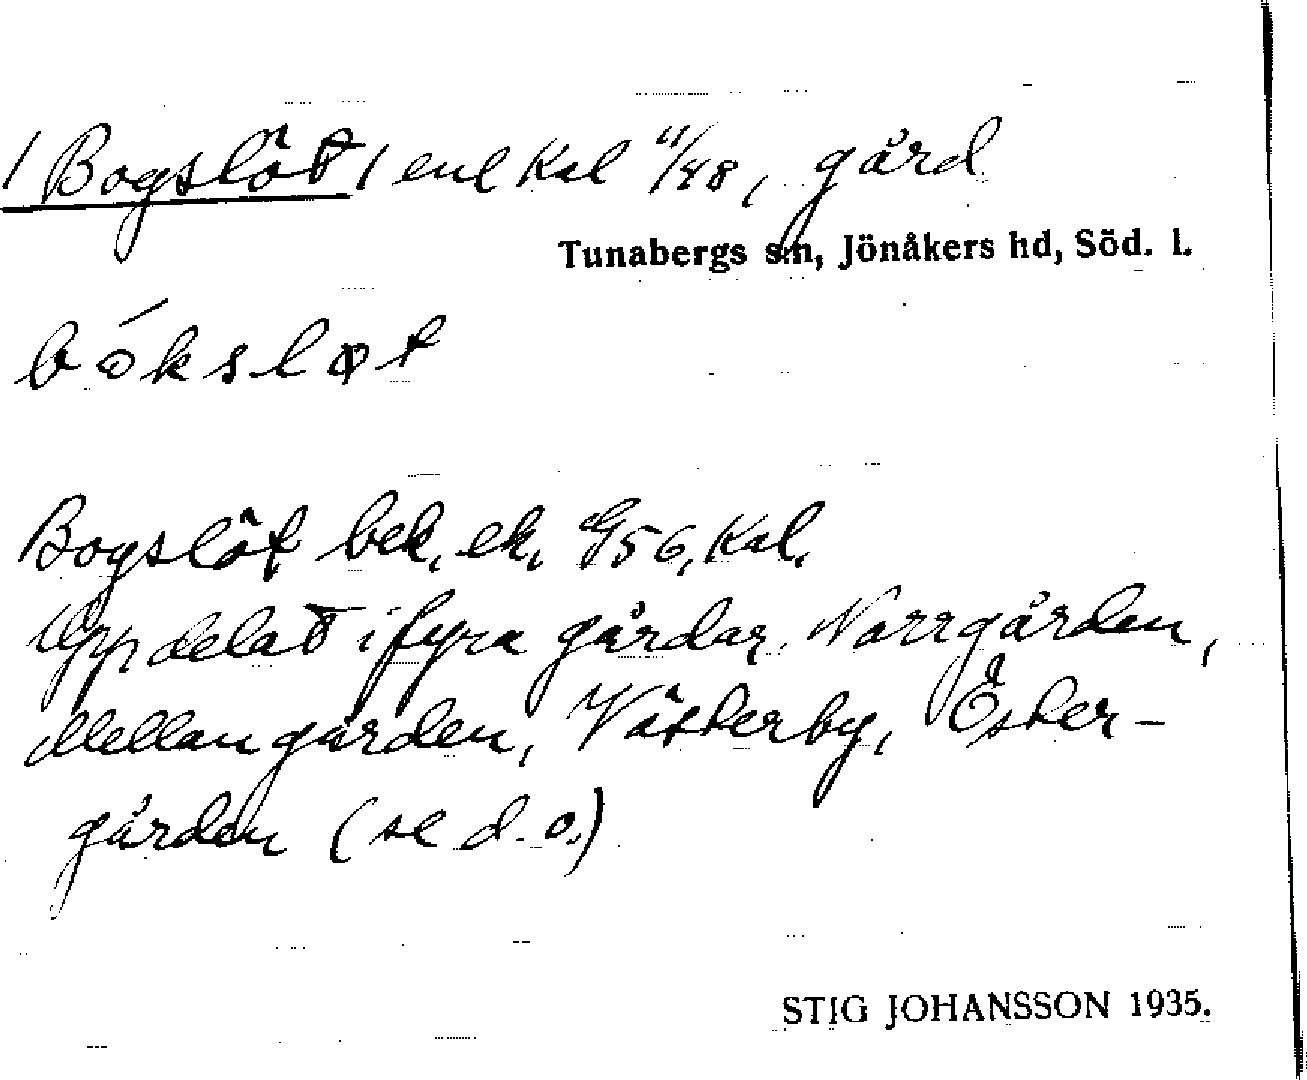 / Bogslöt / enl Kal 11/48, gård
Tunabergs sn, Jönåkers hd, Söd. l.
bóksløt
Bogslöt bek. ek. G56, Kal.
Uppdelat i fyra gårdar, Norrgården,
Mellangården, Västerby, Öster-
gården (se d. o.)
STIG JOHANSSON 1935.